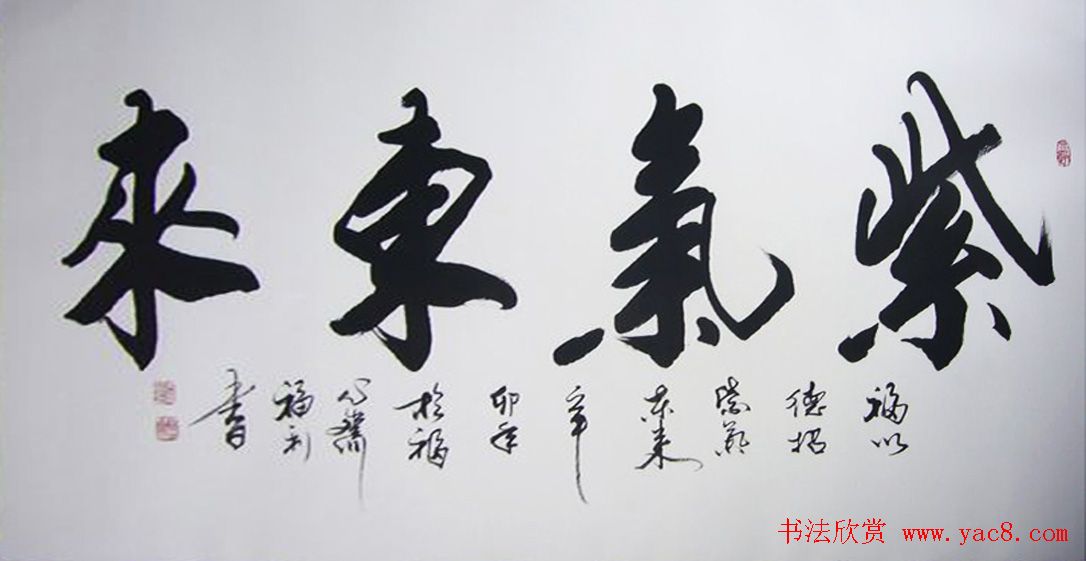 紫氣東來
福以
德招
紫氣
東来
辛
卯年
於福
心齋
福利
書
书法欣赏 www.yac8.com